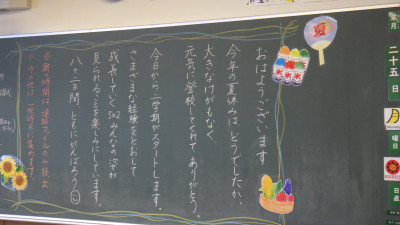 夏
おはようございます
今年の夏休みは、どうでしたか。
大きなけがもなく
元気に登校してくれてありがとう。
今日から二学期がスタートします。
さまざまな経験をとおして
成長していく502みんなの姿が
見られることを楽しみにしています。
八十二日間、ともにがんばろう
月
二十五日
月
曜日
日直